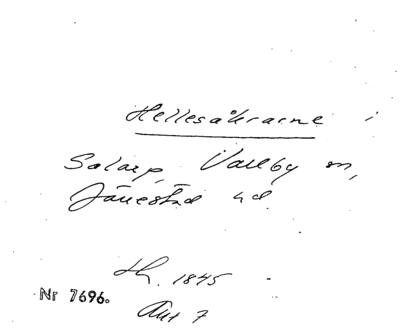 Hellesåkrarne
Salarp, Valby sn,
Järrestad hd.
Sk. 1845
Nr 7696.
Akt 7